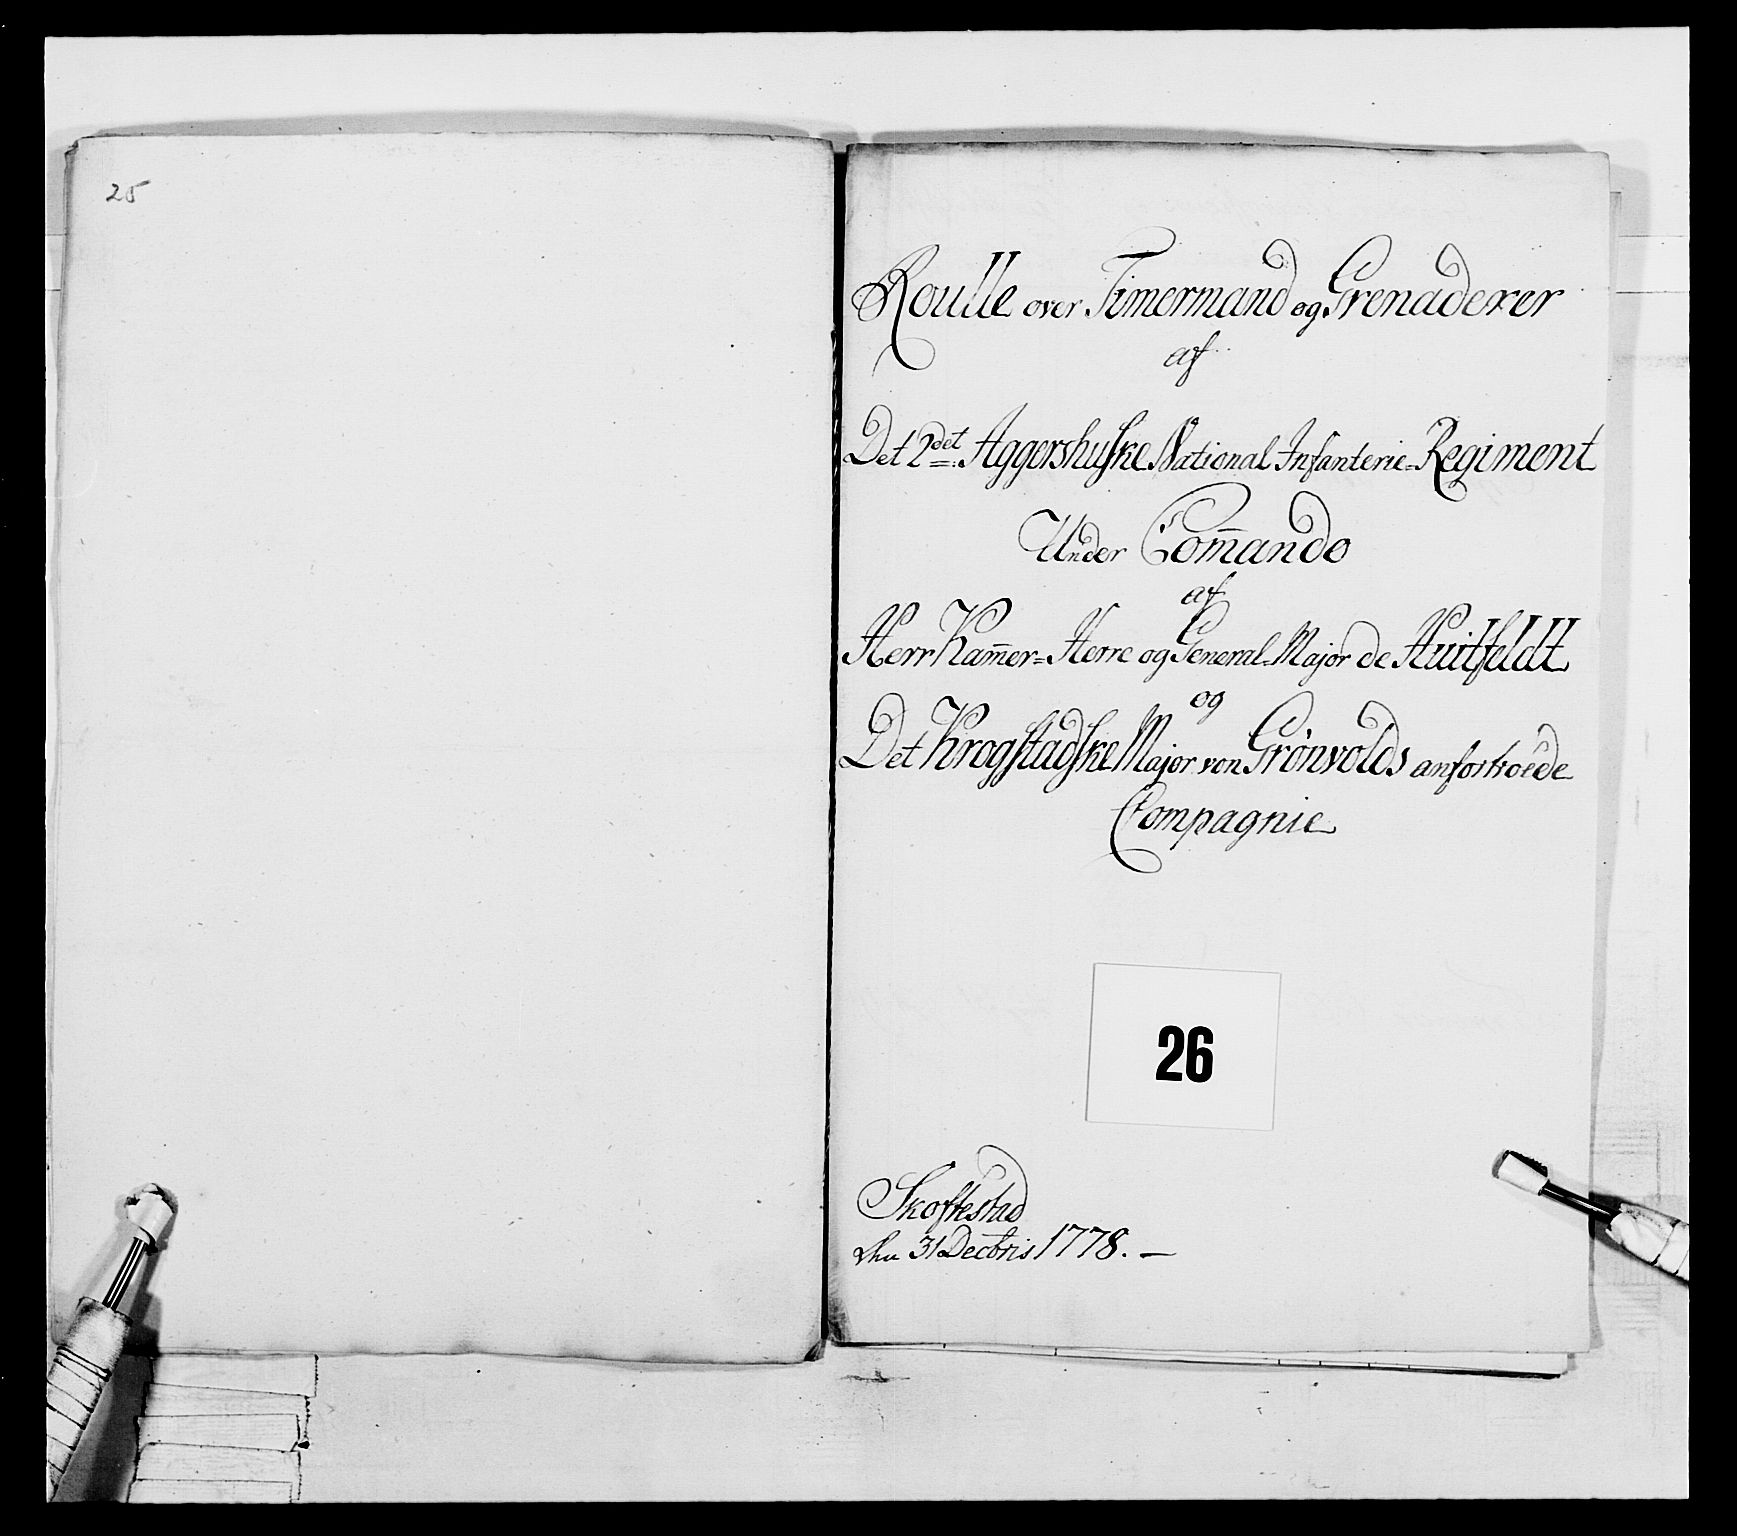 25
Roulle over Timermænd og Grenaderer
af
Det 2det Aggershuske National Infanterie-Regiment
Under Com̄ando
af
Herr Kam̄er-Herre og General-Major de Huitfeldt
og
Det Krogstadske Major von Grønvolds anfortroede
Compagnie
26
Skoftestad
dhn 31 Decbris 1778. —